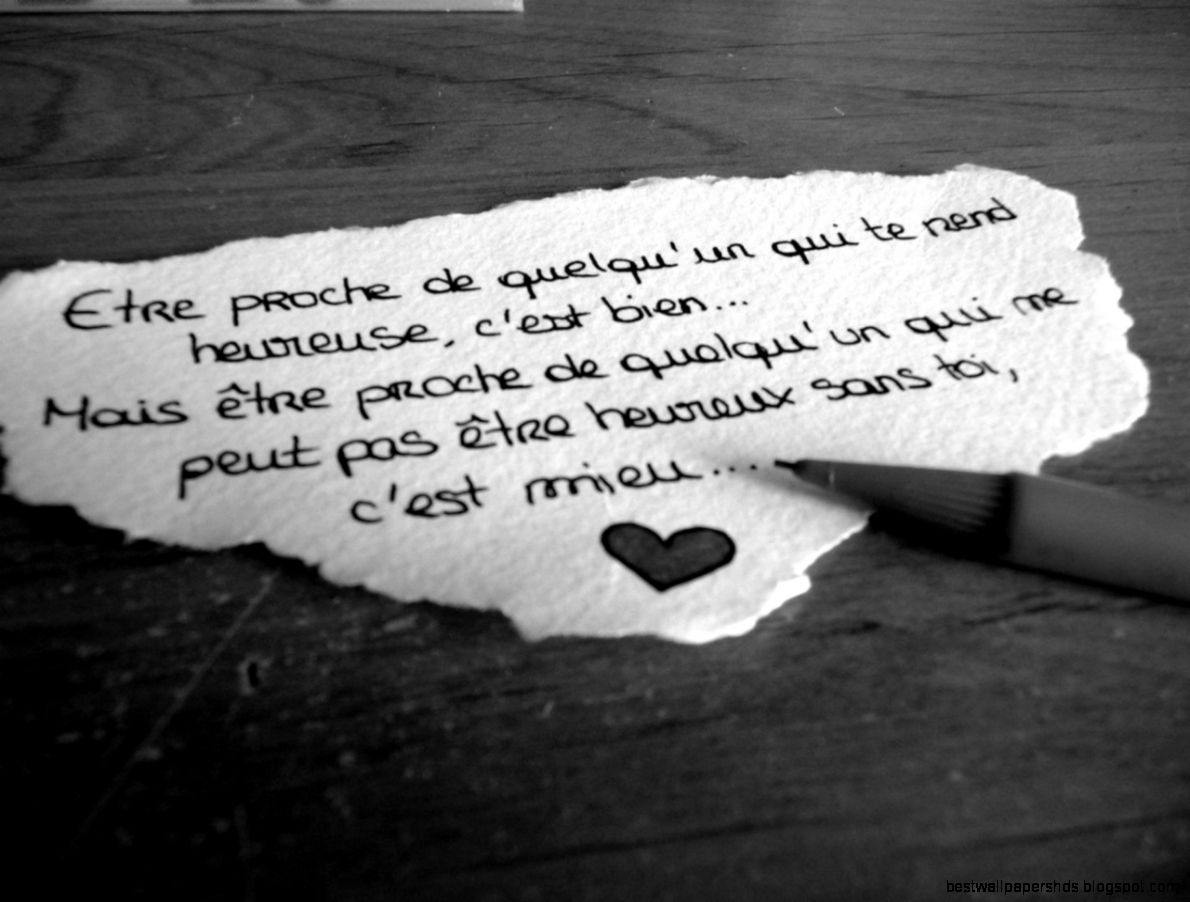 Etre proche de quelqu'un qui te rend
heureuse, c'est bien...
Mais être proche de quelqu'un qui ne
peut pas être heureux sans toi,
c'est mieu....
bestwallpapershds.blogspot.com